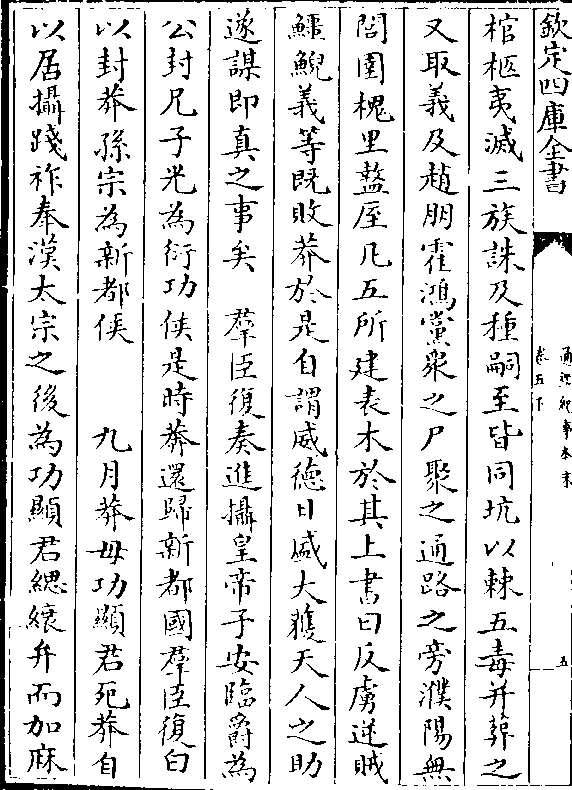 欽定四庫全書
通鑑紀事本末
卷五下
五
棺柩夷滅三族誅及種嗣至皆同坑以棘五毒并葬之
又取義及趙朋霍鴻黨衆之尸聚之通路之旁濮陽無
鹽圉槐里盩厔凡五所建表木於其上書曰反虜逆賊
鱷鯢義等既敗莽於是自謂威德日盛大獲天人之助
遂謀即真之事矣　羣臣復奏進攝皇帝子安臨爵為
公封兄子光為衍功侯是時莽還歸新都國羣臣復白
以封莽孫宗為新都侯　九月莽母功顯君死莽自
以居攝踐祚奉漢太宗之後為功顯君緦縗弁而加麻